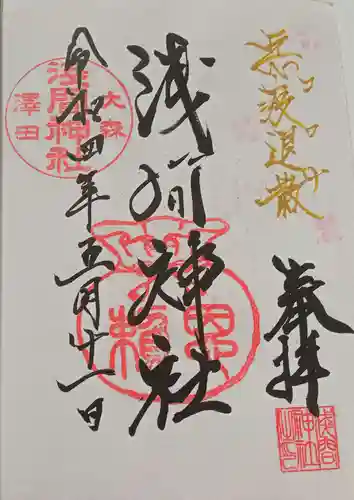 退散
奉拝
浅間神社
令和四年五月十一日
大森
浅間神社
澤田
浅間神社之印